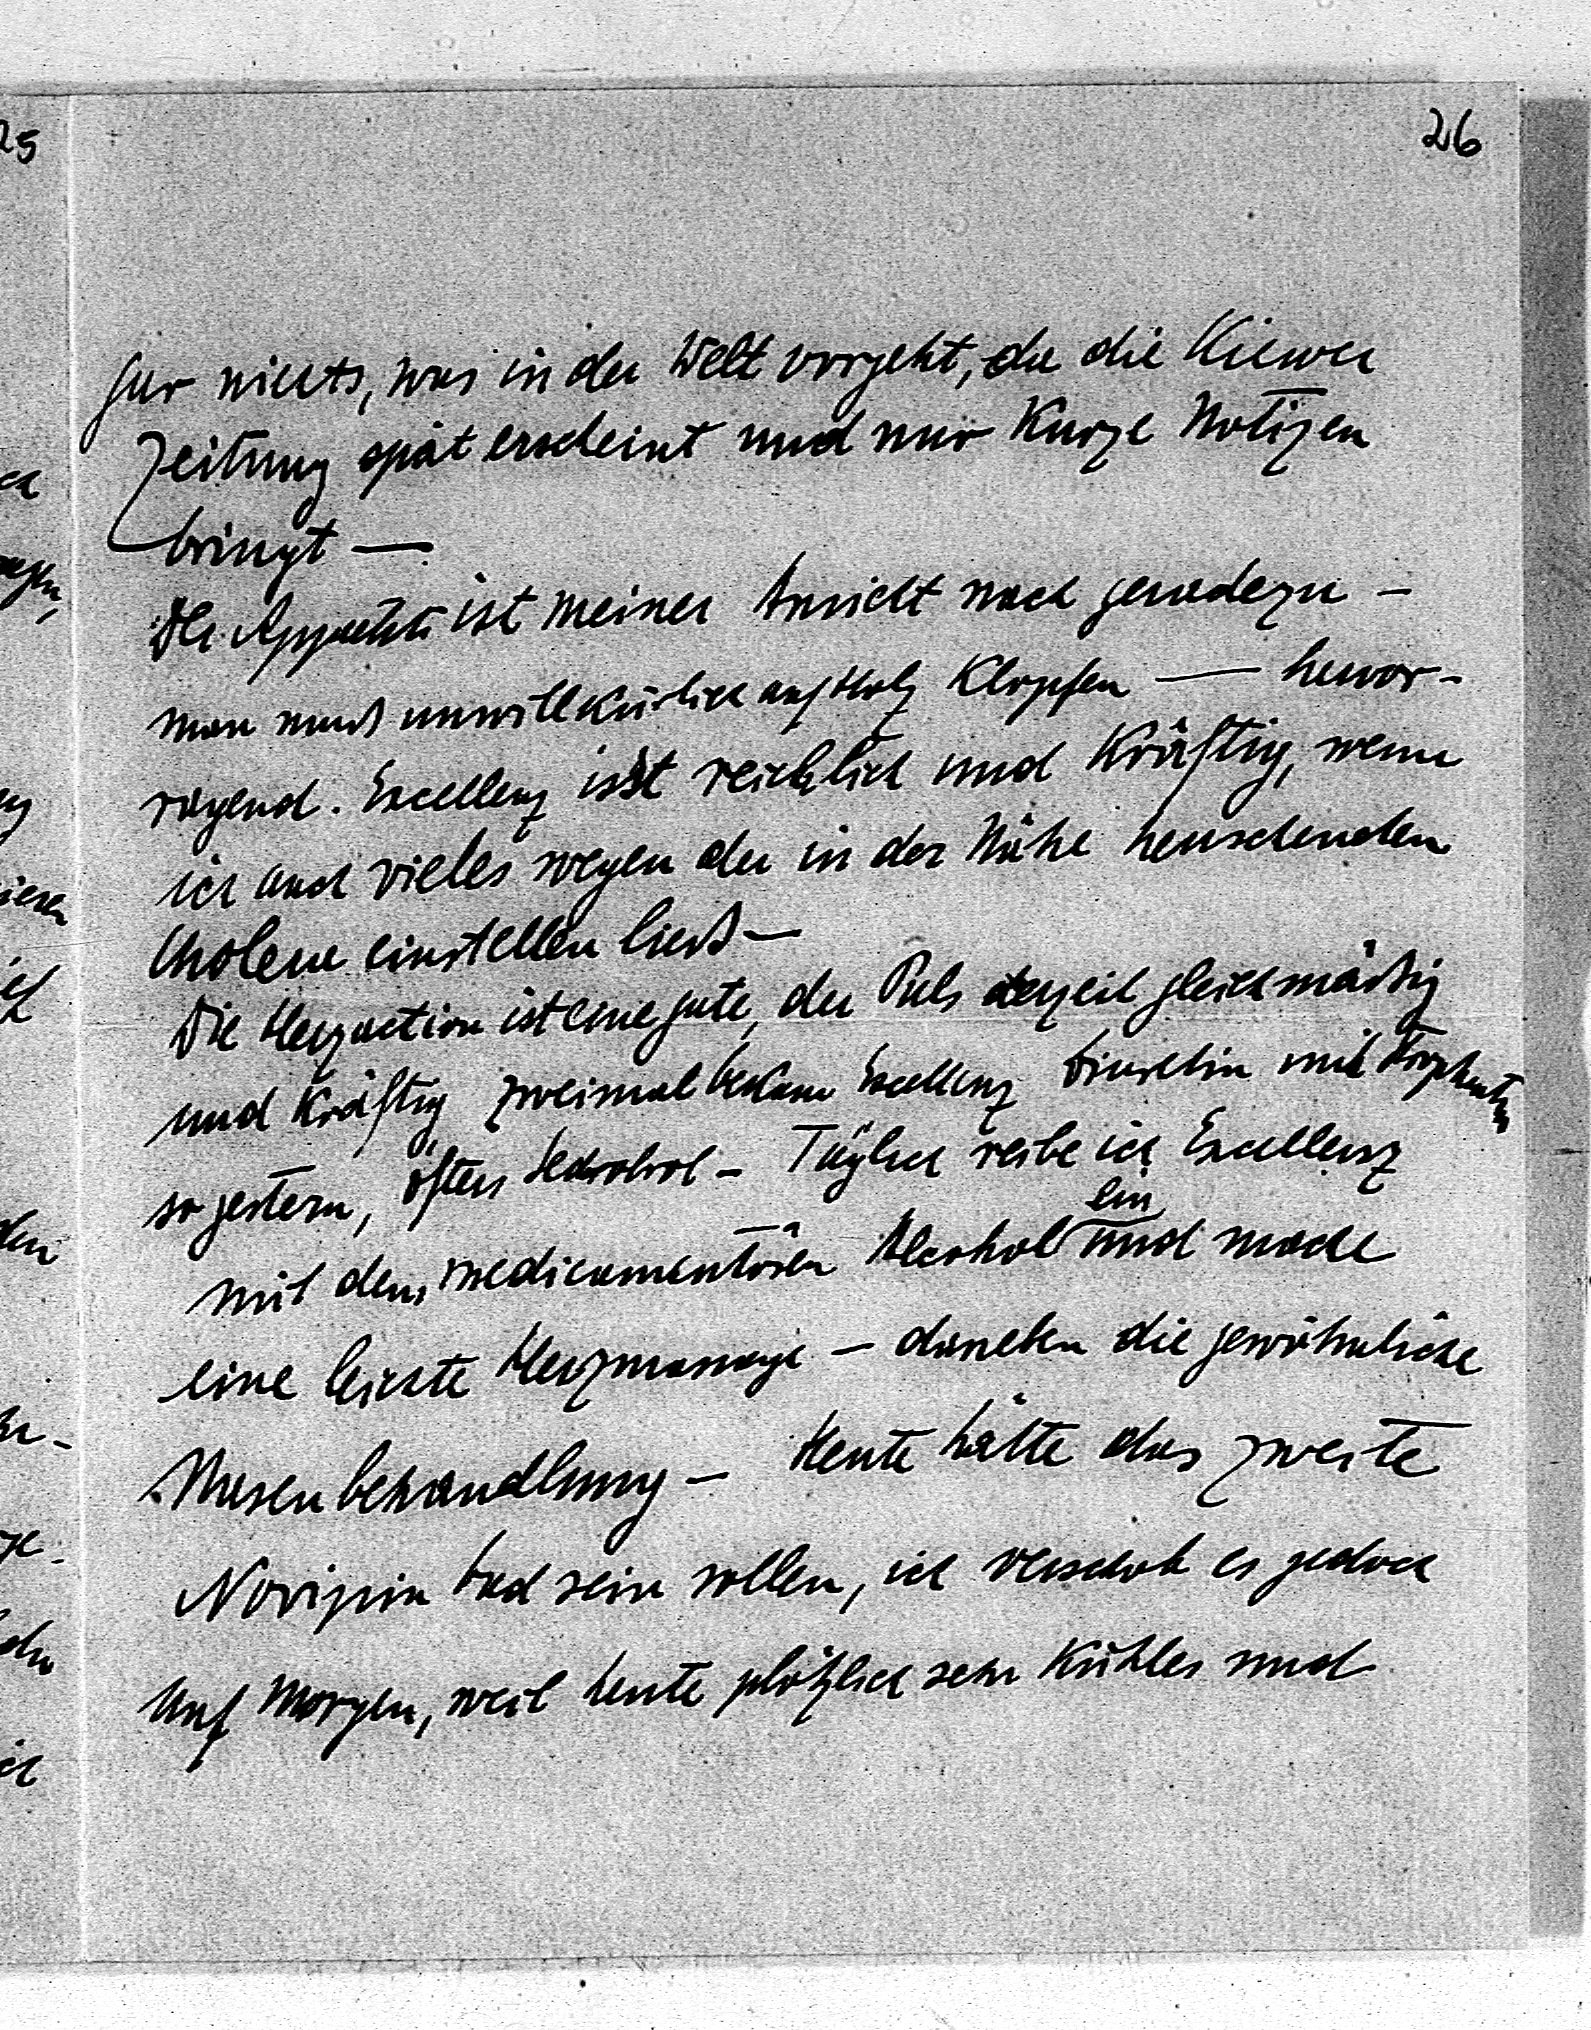 26
gar nichts, was in der Welt vorgeht, da die Kiewer
Zeitung spät erscheint und nur kurze Notizen
bringt —
Der Appetit ist meiner Ansicht nach geradezu —
man muß unwillkürlich auf Holz klopfen — hervor-
ragend. Excellenz isst reichlich und kräftig, wenn
ich auch vieles wegen der in der Nähe herrschenden
Cholera einstellen ließ —
Die Herzaction ist eine gute, der Puls derzeit gleichmäßig
und kräftig zweimal bekam Excellenz Diuretin mit
so gestern, öfters — Täglich reibe ich Excellenz
ein
mit dem medicamentösen Alcohol und mache
eine leichte Herzmassage — daneben die gewöhnliche
Nasenbehandlung — Heute hätte das zweite
Novizin bad sein sollen, ich verschob es jedoch
auf Morgen, weil heute plötzlich sehr kühles und
25